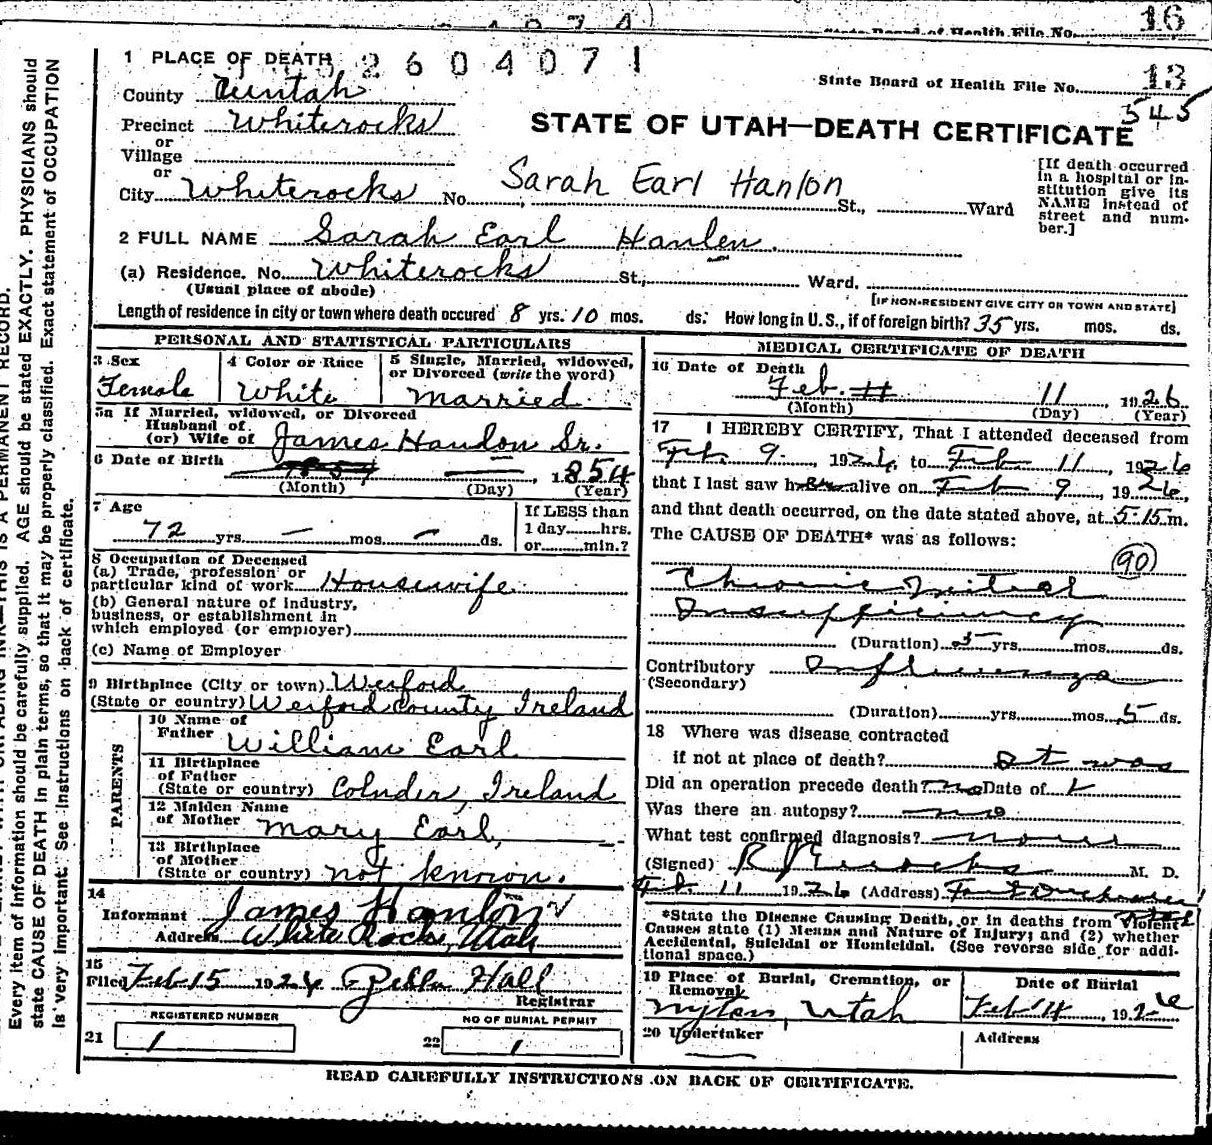 16
State Board of Health File No.
1 PLACE OF DEATH 2604071
State Board of Health File No. 13
545
County Uintah
Precinct Whiterocks
or
Village
or
City Whiterocks No. St., Ward
Sarah Earl Hanlon
STATE OF UTAH—DEATH CERTIFICATE
[If death occurred
in a hospital or in-
stitution give its
NAME instead of
street and num-
ber.]
2 FULL NAME Sarah Earl Hanlen.
(a) Residence. No. Whiterocks St., Ward.
(Usual place of abode)
[IF NON-RESIDENT GIVE CITY OR TOWN AND STATE]
Length of residence in city or town where death occured 8 yrs. 10 mos. ds. How long in U.S., if of foreign birth? 35 yrs. mos. ds.
PERSONAL AND STATISTICAL PARTICULARS
3 Sex
Female
4 Color or Race
White
5 Single, Married, widowed,
or Divorced (write the word)
Married
5a If Married, widowed, or Divorced
Husband of
(or) Wife of James Hanlon Sr.
6 Date of Birth — , 1854
(Month) (Day) (Year)
7 Age
72 yrs. — mos. — ds.
If LESS than
1 day hrs.
or min.?
8 Occupation of Deceased
(a) Trade, profession or
particular kind of work Housewife
(b) General nature of industry,
business, or establishment in
which employed (or employer)
(c) Name of Employer
9 Birthplace (City or town) Wexford
(State or country) Wexford County Ireland
PARENTS
10 Name of
Father William Earl
11 Birthplace
of Father
(State or country) Ireland
12 Maiden Name
of Mother Mary Earl,
13 Birthplace
of Mother
(State or country) not known.
14
Informant James Hanlon
Address White Rocks, Utah
15
Filed Feb 15 1926 Hall
Registrar
REGISTERED NUMBER
21 1
NO OF BURIAL PERMIT
22 1
MEDICAL CERTIFICATE OF DEATH
16 Date of Death
Feb. 11 11, 1926
(Month) (Day) (Year)
17 I HEREBY CERTIFY, That I attended deceased from
Feb. 9, 1926, to Feb 11, 1926
that I last saw her alive on Feb 9, 1926,
and that death occurred, on the date stated above, at 5:15 m.
The CAUSE OF DEATH* was as follows:
90
Chronic Mitral
Insufficiency
(Duration) 5 yrs. mos. ds.
Contributory Influenza
(Secondary)
(Duration) yrs. mos. 5 ds.
18 Where was disease contracted
if not at place of death? It was
Did an operation precede death? no Date of
Was there an autopsy? no
What test confirmed diagnosis?
(Signed) M. D.
Feb. 11 1926 (Address) Fort Duchesne
*State the Disease Causing Death, or in deaths from Violent
Causes state (1) Means and Nature of Injury; and (2) whether
Accidental, Suicidal or Homicidal. (See reverse side for addi-
tional space.)
19 Place of Burial, Cremation, or
Removal
Myton, Utah
Date of Burial
Feb 14, 1926
20 Undertaker
Address
READ CAREFULLY INSTRUCTIONS ON BACK OF CERTIFICATE.
THIS IS A PERMANENT RECORD.
Every item of information should be carefully supplied. AGE should be stated EXACTLY. PHYSICIANS should
state CAUSE OF DEATH in plain terms, so that it may be properly classified. Exact statement of OCCUPATION
is very important. See instructions on back of certificate.